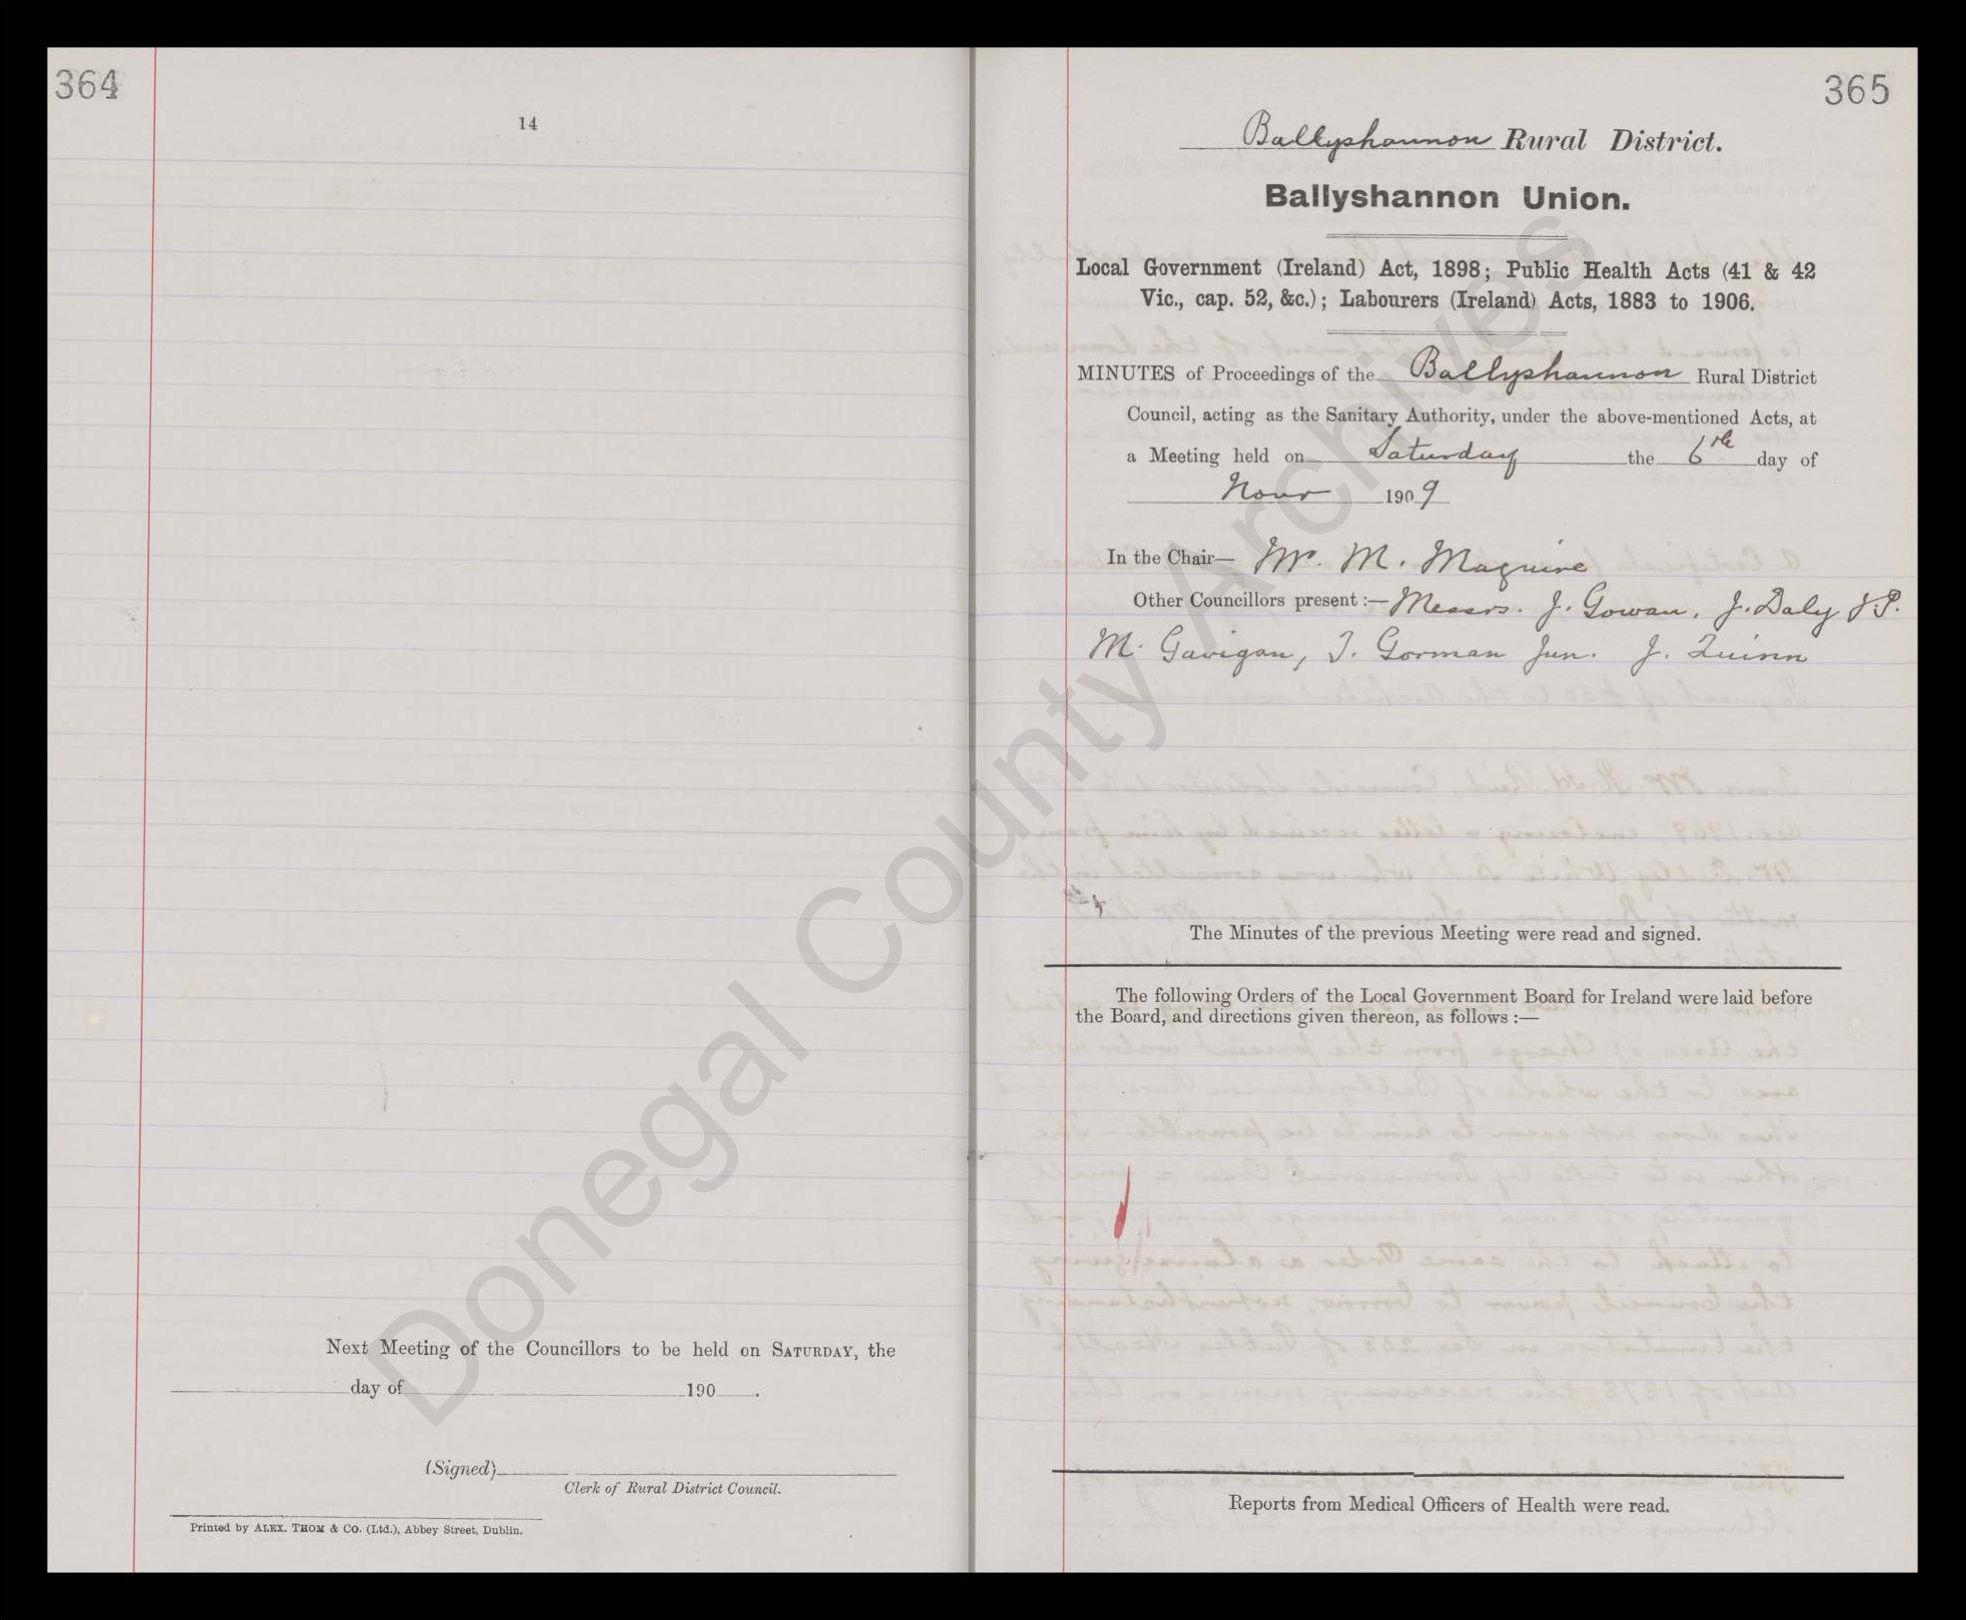 364
14
Next Meeting of the Councillors to be held on SATURDAY, the
day of 190 .
(Signed)
Clerk of Rural District Council.
Printed by ALEX. THOM & Co. (Ltd.), Abbey Street, Dublin.
365
Ballyshannon Rural District.
Ballyshannon Union.
Local Government (Ireland) Act, 1898; Public Health Acts (41 & 42
Vic., cap. 52, &c.); Labourers (Ireland) Acts, 1883 to 1906.
MINUTES of Proceedings of the Ballyshannon Rural District
Council, acting as the Sanitary Authority, under the above-mentioned Acts, at
a Meeting held on Saturday the 6th day of
Novr 1909
In the Chair— Mr. M. Maguire
Other Councillors present :— Messrs. J. Gowan, J. Daly J.P.
M. Gavigan, T. Gorman Jun. J. Quinn
The Minutes of the previous Meeting were read and signed.
The following Orders of the Local Government Board for Ireland were laid before
the Board, and directions given thereon, as follows :—
Reports from Medical Officers of Health were read.
Donegal County Archives